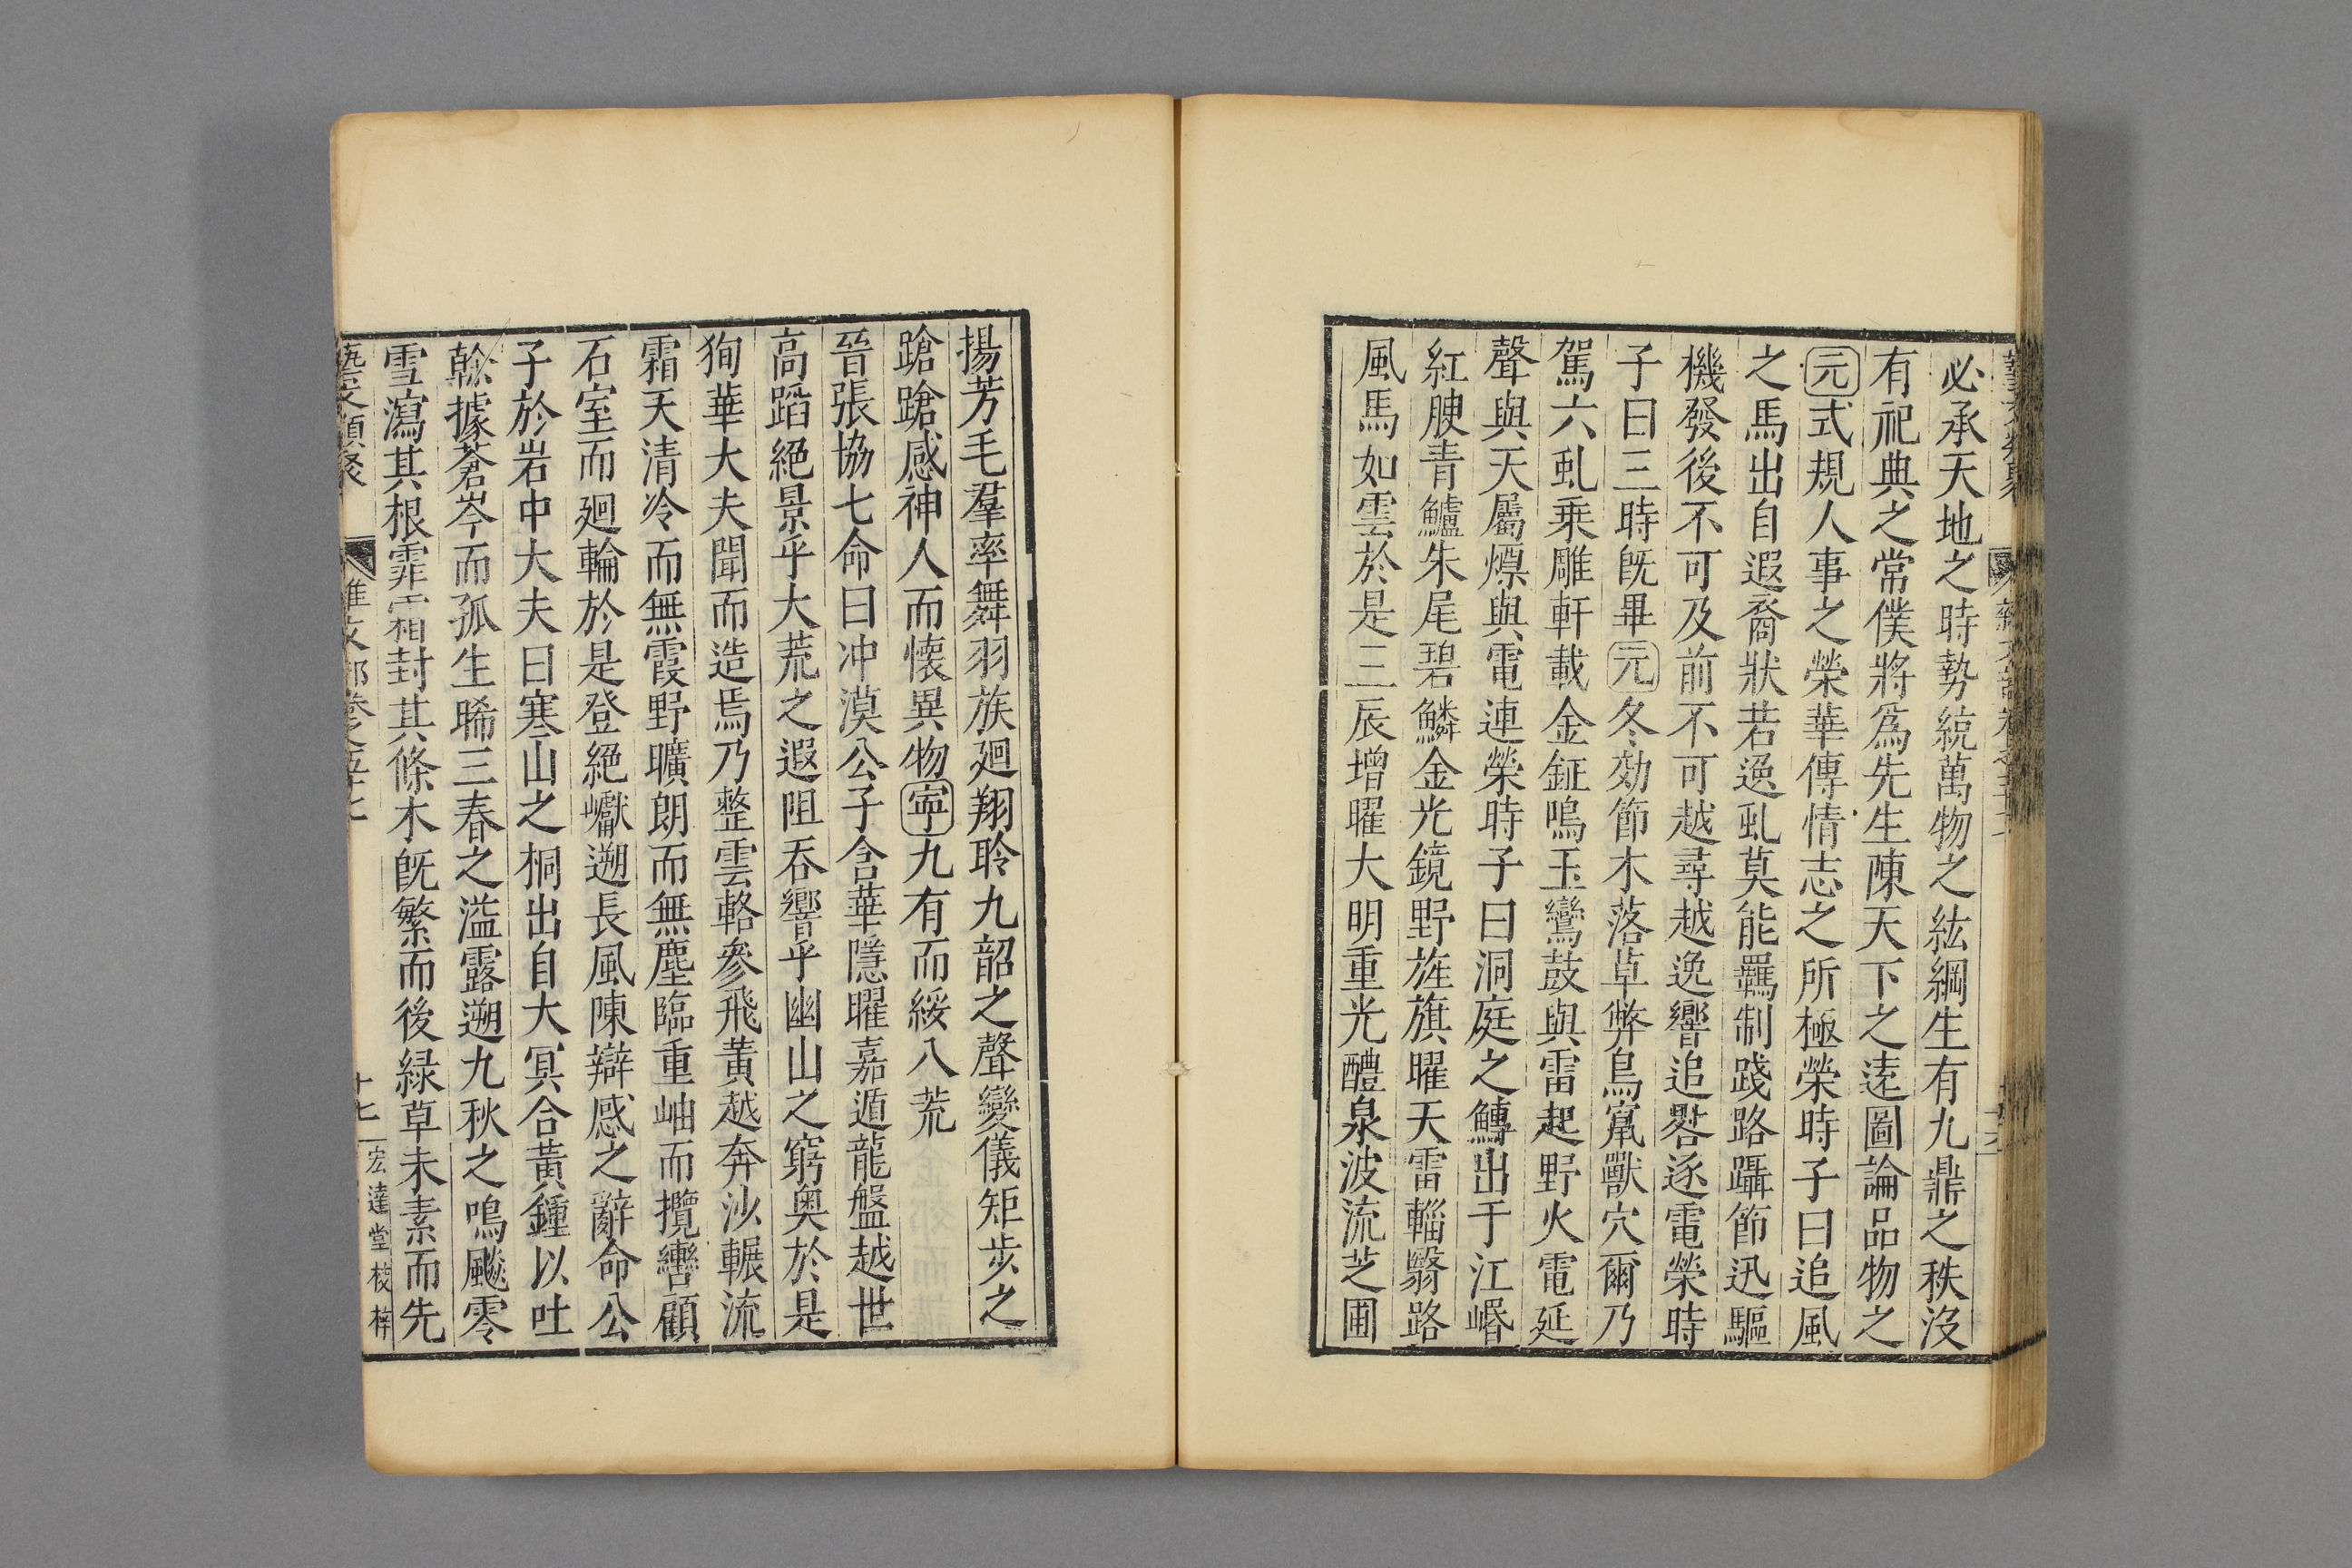 必承天地之時勢統萬物之紘綱生有九鼎之秩沒
有祀典之常僕將爲先生陳天下之逺圖論品物之
元式規人事之榮華傳情志之所極榮時子曰追風
之馬出自遐裔狀若逸虬莫能羈制踐路躡節迅驅
機發後不可及前不可越尋越逸響追晷逐電榮時
子曰三時旣畢元冬効節木落草弊鳥窠獸穴爾乃
駕六虬乘雕軒載金鉦鳴玉鸞鼓與雷起野火電延
聲與天屬熛與電連榮時子曰洞庭之鱄出于江㟭
紅腴青鱸朱尾碧鱗金光鏡野旌旗曜天雷輜翳路
風馬如雲於是三辰增曜大明重光醴泉波流芝圃
揚芳毛羣率舞羽族廻翔聆九韶之聲變儀矩步之
蹌蹌感神人而懷異物寕九有而綏八荒
晉張協七命曰冲漠公子含華隱曜嘉遁龍盤越世
高蹈絕景乎大荒之遐阻吞響乎幽山之窮奥於是
狥華大夫聞而造焉乃整雲輅參飛黃越奔沙輾流
霜天清冷而無霞野曠朗而無塵臨重岫而攬轡顧
石室而廻輪於是登絕巘遡長風陳辯感之辭命公
子於岩中大夫曰寒山之桐出自大冥合黃鍾以吐
榦據蒼岑而孤生晞三春之溢露遡九秋之鳴飈零
雪瀉其根霏霜封其條木旣繁而後緑草未素而先
藝文類聚 雜文部卷之五十七 十七 宏達堂校梓